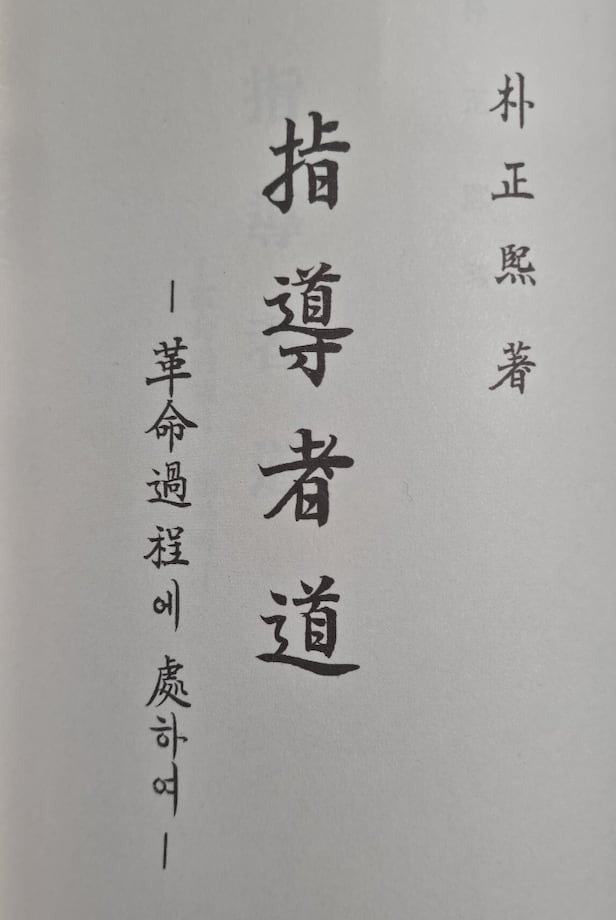 朴正熙 著
指導者道
― 革命過程에 處하여 ―